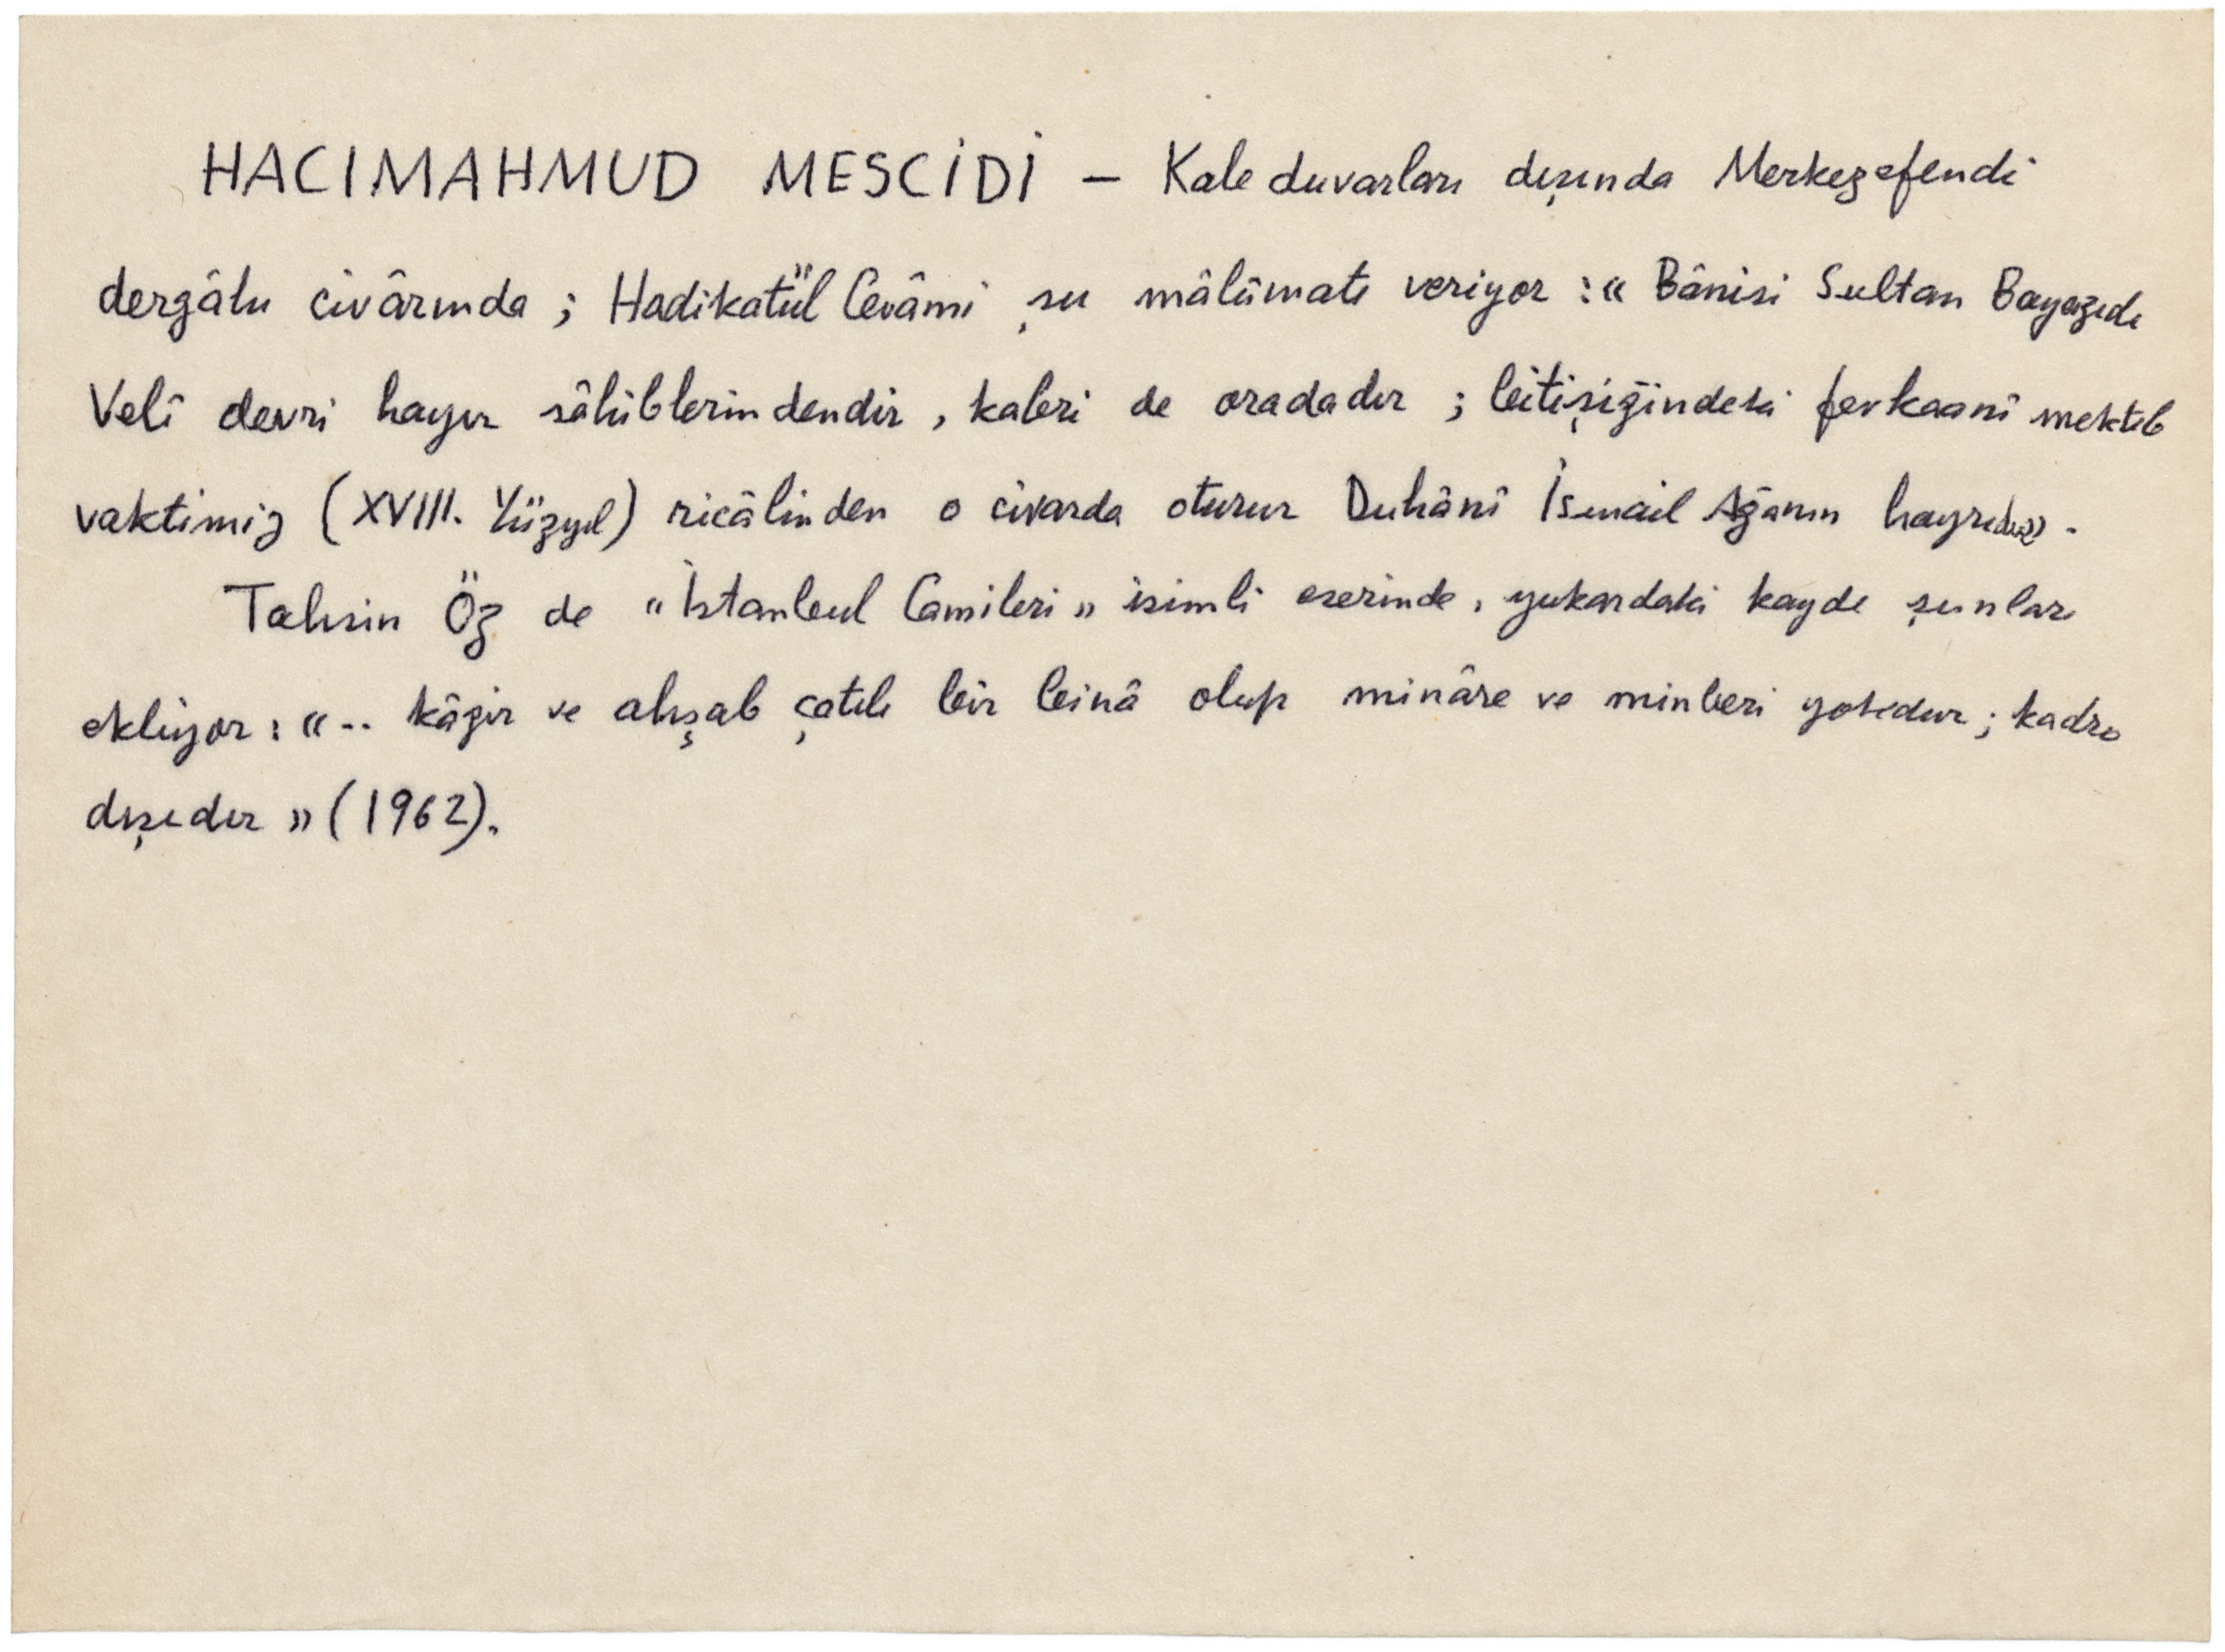 HACIMAHMUD MESCİDİ — Kale duvarları dışında Merkezefendi
dergâhı civârında ; Hadikatül Cevâmi şu mâlûmatı veriyor : « Bânisi Sultan Bayazıdı
Velî devri hayır sâhiblerindendir , kabri de oradadır ; bitişiğindeki fevkaanî mekteb
vaktimiz (XVIII. Yüzyıl) ricâlinden o civarda oturur Duhânî İsmail Ağanın hayrıdır» .
Tahsin Öz de « İstanbul Camileri » isimli eserinde , yukardaki kayde şunları
ekliyor : « .. kâgir ve ahşab çatılı bir binâ olup minâre ve minberi yokdur ; kadro
dışıdır » (1962).